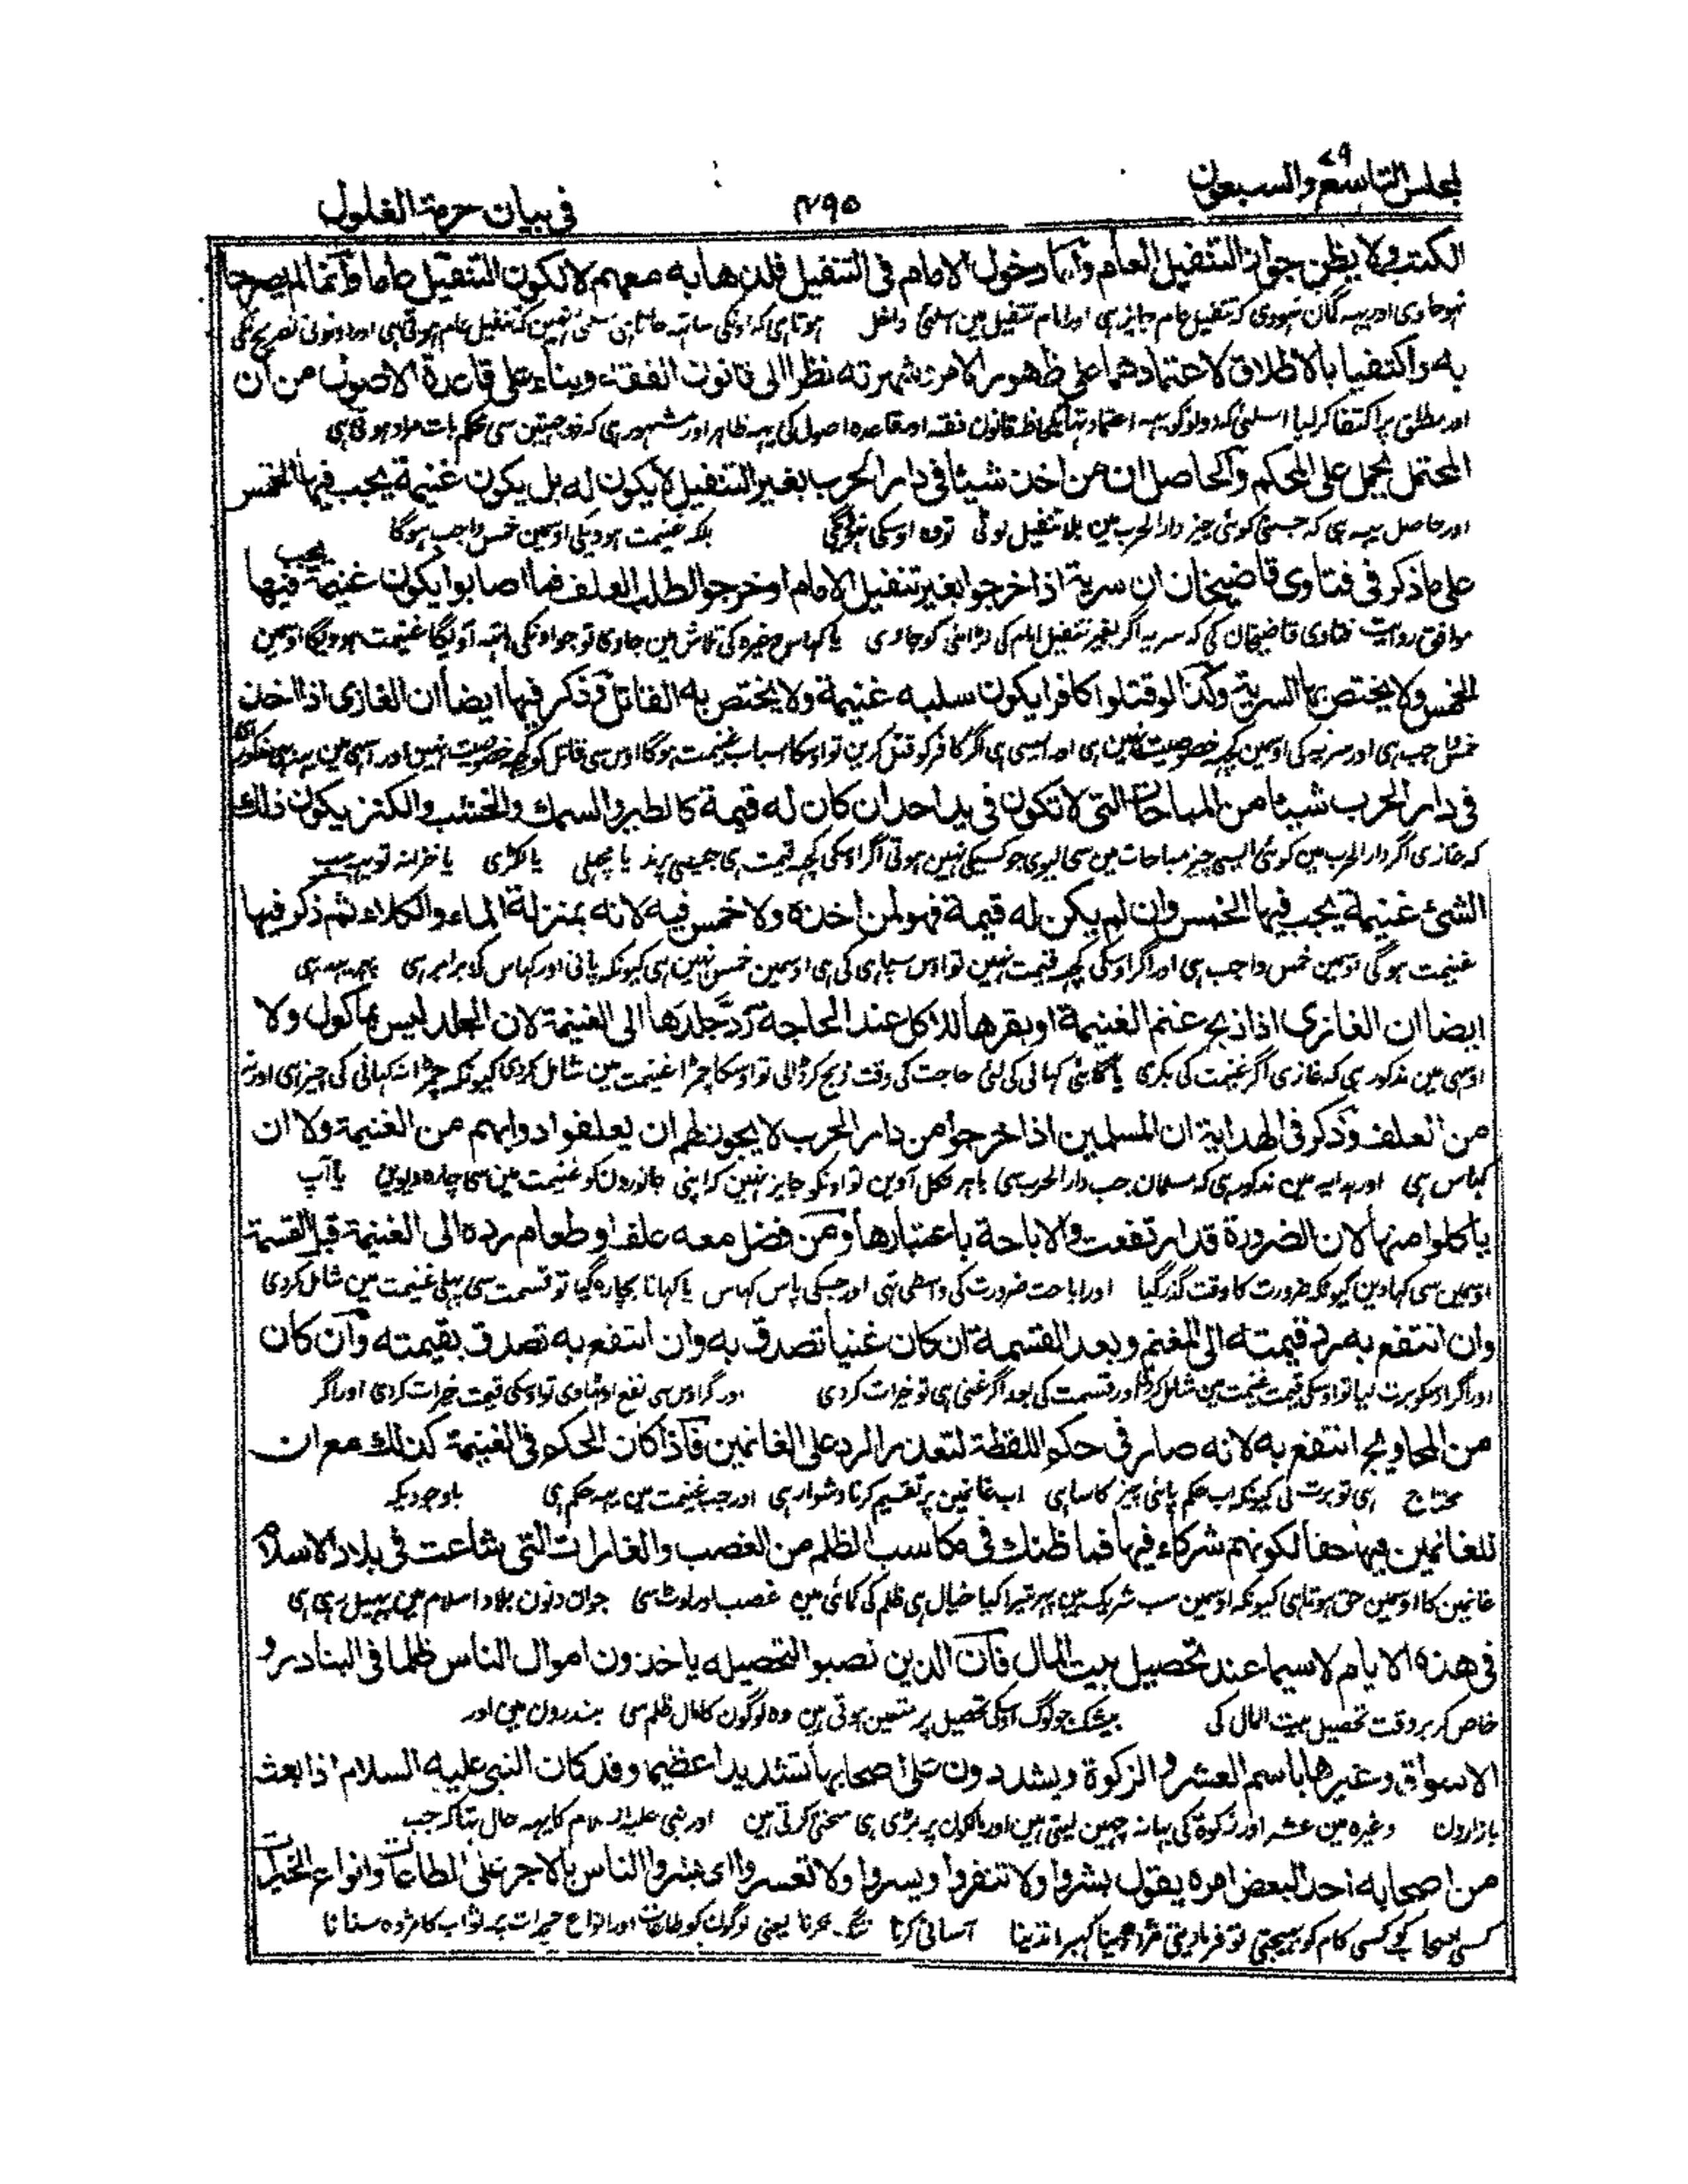 لمجلس التاسع والسبعون ٧٩
٤٩٥
فی بیان حرمة الغلول
الکتب ولا یظن جواز التنفیل العام وانما دخول الامام فی التنفیل فلذهابه معهم لا لکون التنفیل عاما وانما لم یصرحا
نہو جاوی اور یہہ گمان نہووی کہ تنفیل عام جایز ہی اور امام تنفیل مین اسلئی داخل ہوتا ہی کہ اونکی ساتہہ جاتا ہی اسلئی نہین کہ تنفیل عام ہوتی ہی اور دونونی تصریح نکی
به واکتفیا بالاطلاق لاعتمادهما علی ظهور الامر وشهرته نظرا الی قانون الفقه وبناء علی قاعدة الاصول من ان
اور مطلق پر اکتفا کر لیا اسلئی کہ دونوکو یہہ اعتماد تہا کہ بلحاظ قانون فقہ اور قاعدہ اصول کی یہہ ظاہر اور مشہور ہی کہ ذو جہتین سی محکم بات مراد ہوتی ہی
المحتمل یحمل علی المحکم والحاصل ان من اخذ شیئا فی دار الحرب بغیر التنفیل لا یکون له بل یکون غنیمة یجب فیها الخمس
اور حاصل یہہ ہی کہ جسنی کوئی چیز دار الحرب مین بلا تنفیل لوٹی تو وہ اوسکی نہوگی بلکہ غنیمت ہووی گی اوسمین خمس واجب ہوگا
علی ما ذکر فی فتاوی قاضیخان ان سریة اذا خرجوا بغیر تنفیل الامام او خرجوا لطلب العلف فما اصابوا یکون غنیمة یجب فیها
موافق روایت فتاوی قاضیخان کی کہ سریہ اگر بغیر تنفیل امام کی لڑائی کو جاوی یا گہاس وغیرہ کی تلاش مین جاوی تو جو اونکی ہاتہہ آویگا غنیمت ہوویگا اوسمین
الخمس ولا یختص بها السریة وکذا لو قتلوا کافرا یکون سلبه غنیمة ولا یختص به القاتل وذکر فیها ایضا ان الغازی اذا اخذ
خمس واجب ہی اور سریہ کی اوسمین کچہہ خصوصیت نہین ہی اور ایسی ہی اگر کافر کو قتل کرین تو اوسکا اسباب غنیمت ہوگا اوس سی قاتل کو کچہہ خصوصیت نہین اور اسی مین یہہ بہی مذکور ہی
فی دار الحرب شیئا من المباحات التی لا تکون فی ید احد ان کان له قیمة کالطیر والسمك والخشب والکنز یکون ذلك
کہ غازی اگر دار الحرب مین کوئی ایسی چیز مباحات مین سی لیوی جو کسیکی نہین ہوتی اگر اوسکی کچہہ قیمت ہی جیسی پرند یا مچہلی یا لکڑی یا خزانہ تو یہہ سب
الشئ غنیمة یجب فیها الخمس وان لم یکن له قیمة فهو لمن اخذه ولا خمس فیه لانه بمنزلة الماء والکلاء ثم ذکر فیها
غنیمت ہوگی اوسمین خمس واجب ہی اور اگر اوسکی کچہہ قیمت نہین تو اوس سپاہی کی ہی اوسمین خمس نہین ہی کیونکہ پانی اور گہاس کی برابر ہی پہر یہہ بہی
ایضا ان الغازی اذا ذبح غنم الغنیمة او بقرها للاکل عند الحاجة رد جلدها الی الغنیمة لان الجلد لیس بماکول ولا
اوسی مین مذکور ہی کہ غازی اگر غنیمت کی بکری یا گائی کہانی کی لئی حاجت کی وقت ذبح کر ڈالی تو اوسکا چمڑا غنیمت مین شامل کردی کیونکہ چمڑا نہ کہانی کی چیز ہی اور نہ
من العلف وذکر فی الهدایة ان المسلمین اذا خرجوا من دار الحرب لا یجوز لهم ان یعلفوا دوابهم من الغنیمة ولا ان
گہاس ہی اور ہدایہ مین مذکور ہی کہ مسلمان جب دار الحرب سی باہر نکل آوین تو اونکو جایز نہین کہ اپنی جانورون کو غنیمت مین سی چارہ دیوین یا آپ
یاکلوا منها لان الضرورة قد ارتفعت والاباحة باعتبارها ومن فضل معه علف او طعام رده الی الغنیمة قبل القسمة
اوسمین سی کہاوین کیونکہ ضرورت کا وقت گذر گیا اور اباحت ضرورت کی واسطی تہی اور جسکی پاس گہاس یا کہانا بچا رہ گیا تو قسمت سی پہلی غنیمت مین شامل کردی
وان انتفع به رد قیمته الی المغنم وبعد القسمة ان کان غنیا تصدق به وان انتفع به تصدق بقیمته وان کان
اور اگر اوسکو برت لیا تو اوسکی قیمت غنیمت مین شامل کردی اور قسمت کی بعد اگر غنی ہی تو خیرات کردی اور اگر اوس سی نفع اوٹہاوی تو اوسکی قیمت خیرات کردی اور اگر
من المحاویج انتفع به لانه صار فی حکم اللقطة لتعذر الرد علی الغانمین فاذا کان الحکم فی الغنیمة کذلك مع ان
محتاج ہی تو برت لی کیونکہ اب حکم پائی چیز کا سا ہی اب غانمین پر تقسیم کرنا دشوار ہی اور جب غنیمت مین یہہ حکم ہی باوجودیکہ
للغانمین فیها حقا لکونهم شرکاء فیها فما ظنك فی مکاسب الظلم من الغصب والغارات التی شاعت فی بلاد الاسلام
غانمین کا اوسمین حق ہوتا ہی کیونکہ اوسمین سب شریک ہین پہر تیرا کیا خیال ہی ظلم کی کمائی مین غصب اور لوٹ سی جو ان دنون بلاد اسلام مین پہیل رہی ہی
فی هذه الایام لا سیما عند تحصیل بیت المال فان الذین نصبوا لتحصیله یاخذون اموال الناس ظلما فی البنادر و
خاص کر بر وقت تحصیل بیت المال کی بیشک جو لوگ اوسکی تحصیل پر متعین ہوتی ہین وہ لوگون کا مال ظلم سی بندرون مین اور
الاسواق وغیرها باسم العشر والزکوة ویشددون علی اصحابها تشدیدا عظیما وقد کان النبی علیه السلام اذا بعث
بازارون وغیرہ مین عشر اور زکوة کی بہانہ چہین لیتی ہین اور مالکون پر بڑی ہی سختی کرتی ہین اور نبی علیہ السلام کا یہہ حال تہا کہ جب
من اصحابه احدا لبعض امره یقول بشروا ولا تنفروا ویسروا ولا تعسروا ای بشروا الناس بالاجر علی الطاعات وانواع الخیرات
کسی صحابی کو کسی کام کو بہیجتی تو فرمادیتی مژدہ دینا گہبرا ندینا آسانی کرنا تنگ نکرنا یعنی لوگون کو طاعات اور انواع خیرات پر ثواب کا مژدہ سنانا